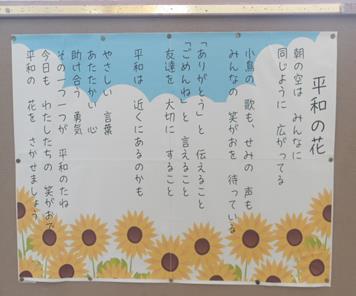 平和の花
朝の空は みんなに
同じように 広がってる
小鳥の 歌も、せみの 声も
みんなの 笑がおを 待っている
「ありがとう」と 伝えること
「ごめんね」と 言えること
友達を 大切に すること
平和は 近くにあるのかも
やさしい 言葉
あたたかい 心
助け合う 勇気
その一つ一つが 平和のたね
今日も わたしたちの 笑がおで
平和の 花を さかせましょう